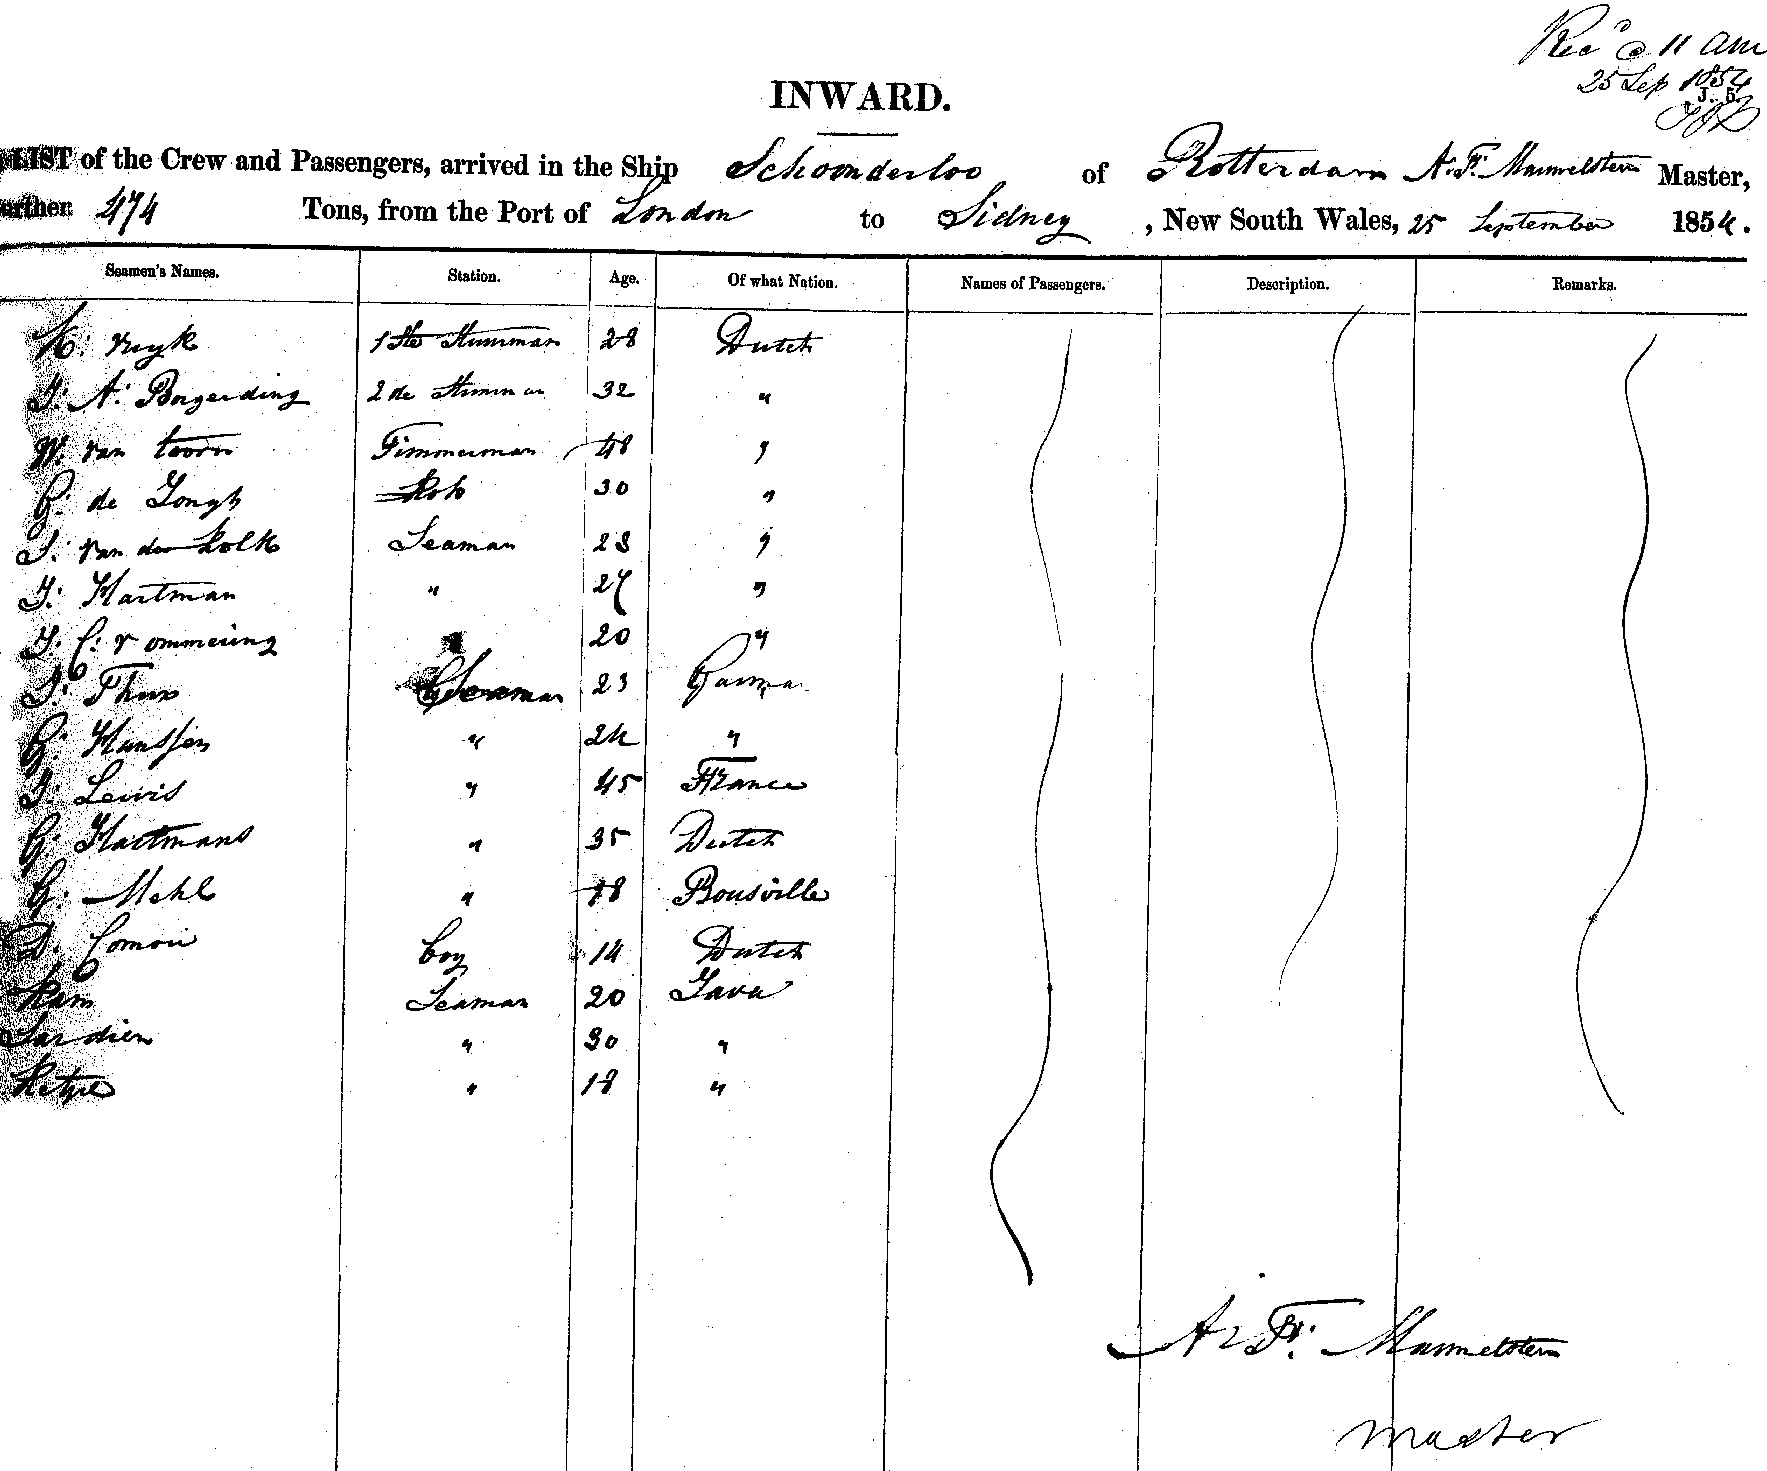 Rec'd @ 11 am
25 Sep 1854
J. 5.
INWARD.
LIST of the Crew and Passengers, arrived in the Ship Schoonderloo of Rotterdam A. F. Mammelstern Master,
Burthen 474 Tons, from the Port of London to Sidney, New South Wales, 25 September 1854.
Seamen's Names. Station. Age. Of what Nation. Names of Passengers. Description. Remarks.
ruyk 1ste Stuurman 28 Dutch
J: A: Bogerding 2de Stuurman 32 "
W: van toorn Timmerman 48 "
G: de Jongh Kok 30 "
J: van der Kolk Seaman 28 "
J: Hartman " 27 "
J: C: v ommering 20 "
J: Seaman 23 Germa
G: Hanssen " 24 "
J: Lewis " 45 France
G: Hartmans " 35 Dutch
G: Mehl " 18
D: boy 14 Dutch
Seaman 20 Java
Sardien " 30 "
" 18 "
A: F: Mammelstern
Master